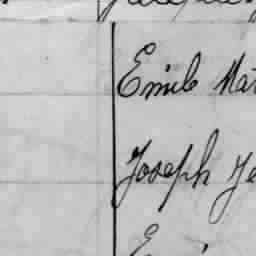 Emile Mat
Joseph Je